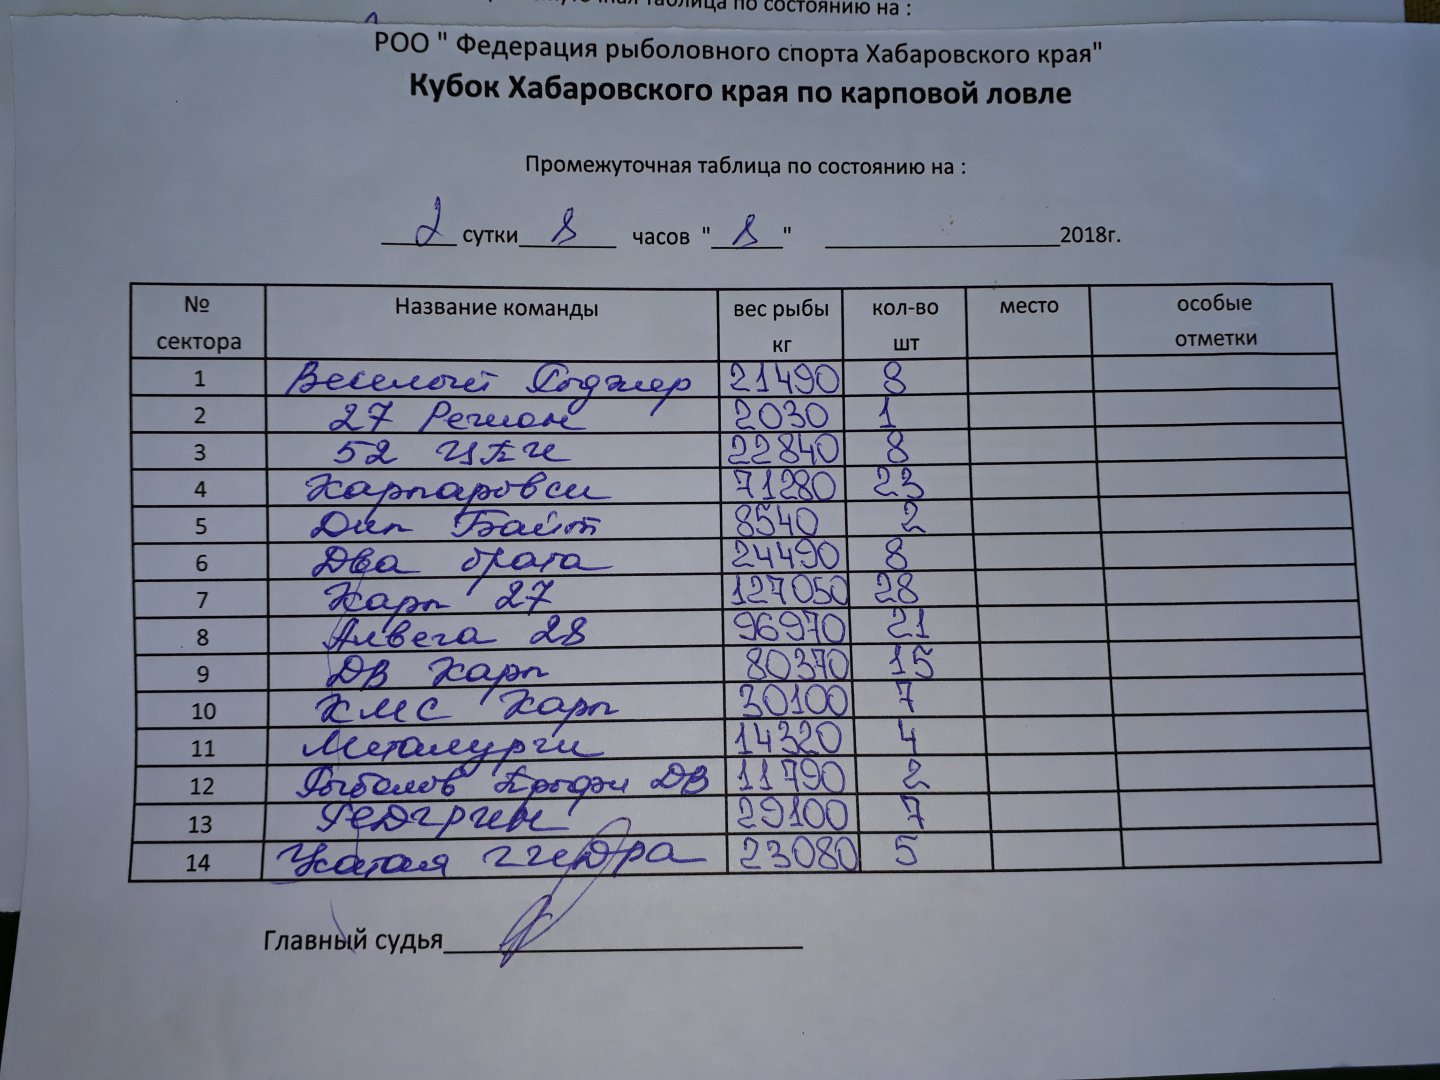 таблица по состоянию на :
РОО " Федерация рыболовного спорта Хабаровского края"
Кубок Хабаровского края по карповой ловле
Промежуточная таблица по состоянию на :
2 сутки 8 часов "8" 2018г.
№ сектора Название команды вес рыбы кг кол-во шт место особые отметки
1 Веселый Роджер 21490 8
2 27 Регион 2030 1
3 52 ЦБИ 22840 8
4 Карпаровси 71280 23
5 Дип Байт 8540 2
6 Два брата 24490 8
7 Карп 27 127050 28
8 Алвега 28 96970 21
9 ДВ Карп 80370 15
10 КМС Карп 30100 7
11 Металурги 14320 4
12 Рыболов Профи ДВ 11790 2
13 Редгрин 29100 7
14 23080 5
Главный судья